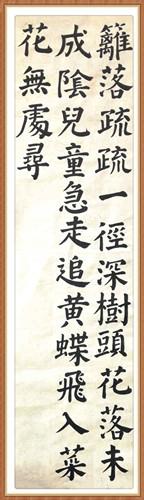 籬落疏疏一徑深樹頭花落未
成陰兒童急走追黃蝶飛入菜
花無處尋